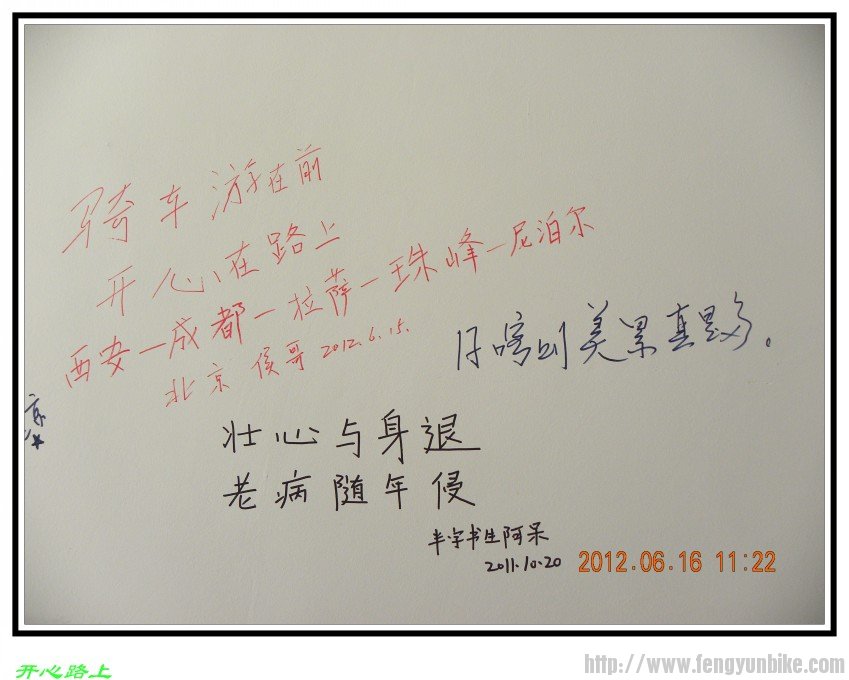 骑车游在前
开心在路上
西安一成都一拉萨一珠峰一尼泊尔
北京 侯哥 2012.6.15.
日喀则美累真多。
京
壮心与身退
老病随年侵
半字书生阿呆
2011.10.20
2012.06.16 11:22
开心路上
http://www.fengyunbike.com/